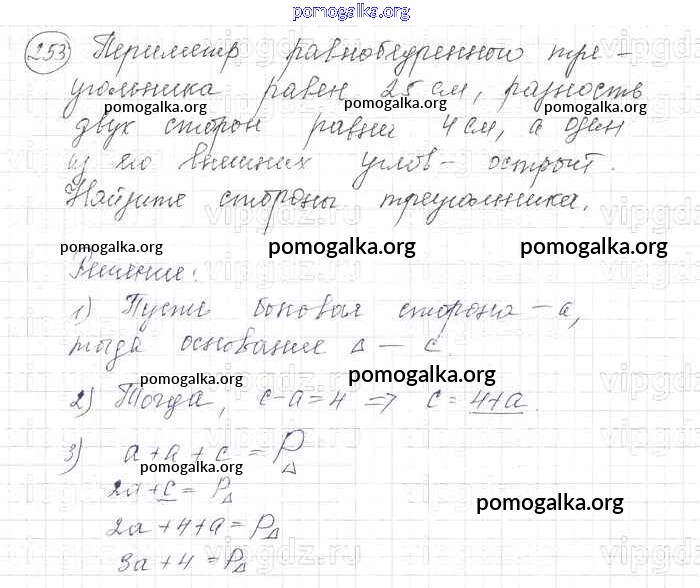 pomogalka.org
253 Периметр равнобедренного тре-
угольника равен 25 см, разность
pomogalka.org pomogalka.org pomogalka.org
двух сторон равна 4 см, а один
из его внешних углов - острый.
Найдите стороны треугольника.
pomogalka.org pomogalka.org pomogalka.org
Решение:
1) Пусть боковая сторона - a,
тогда основание Δ - c.
pomogalka.org pomogalka.org
2) Тогда, c-a=4 => c = 4+a.
3) a+a+c = PΔ
pomogalka.org
2a+c = PΔ
pomogalka.org
2a+4+a = PΔ
3a+4 = PΔ